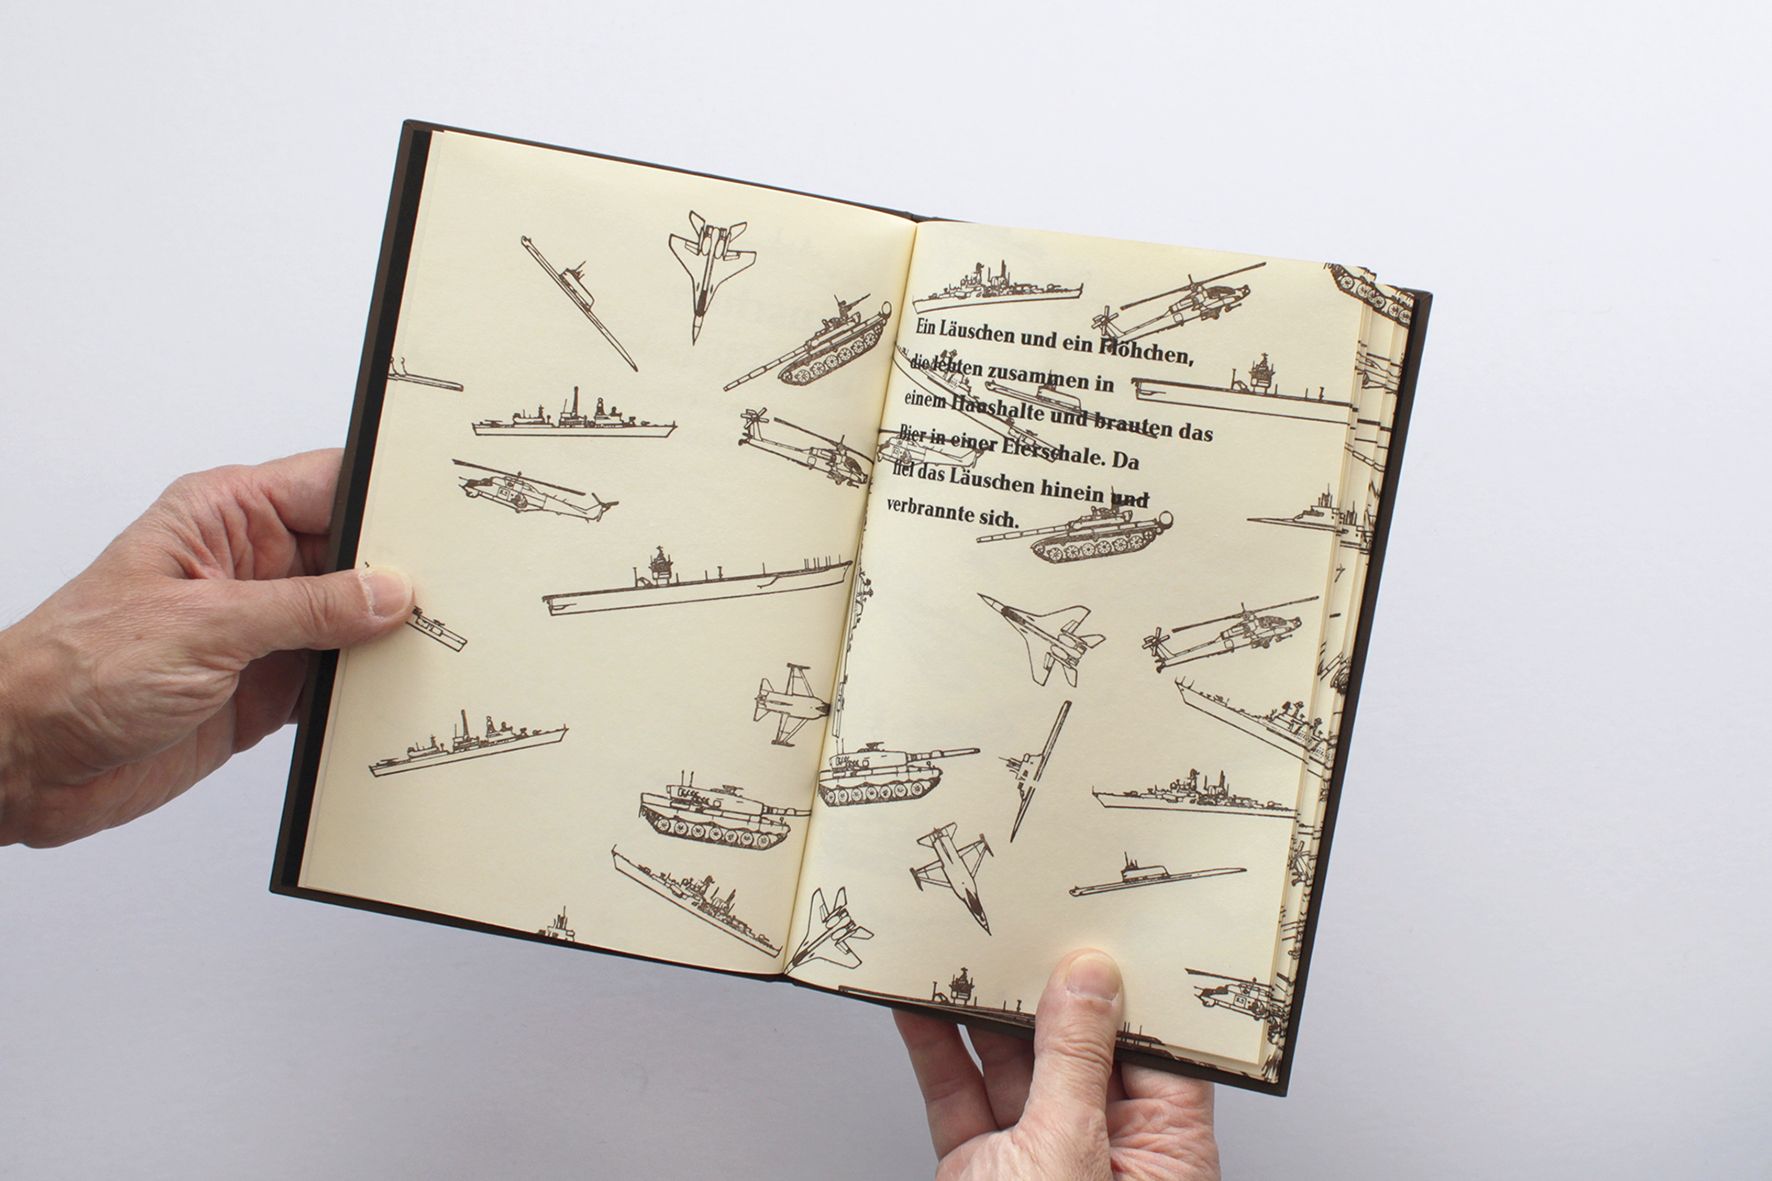 Ein Läuschen und ein Flöhchen,
die lebten zusammen in
einem Haushalte und brauten das
Bier in einer Eierschale. Da
fiel das Läuschen hinein und
verbrannte sich.